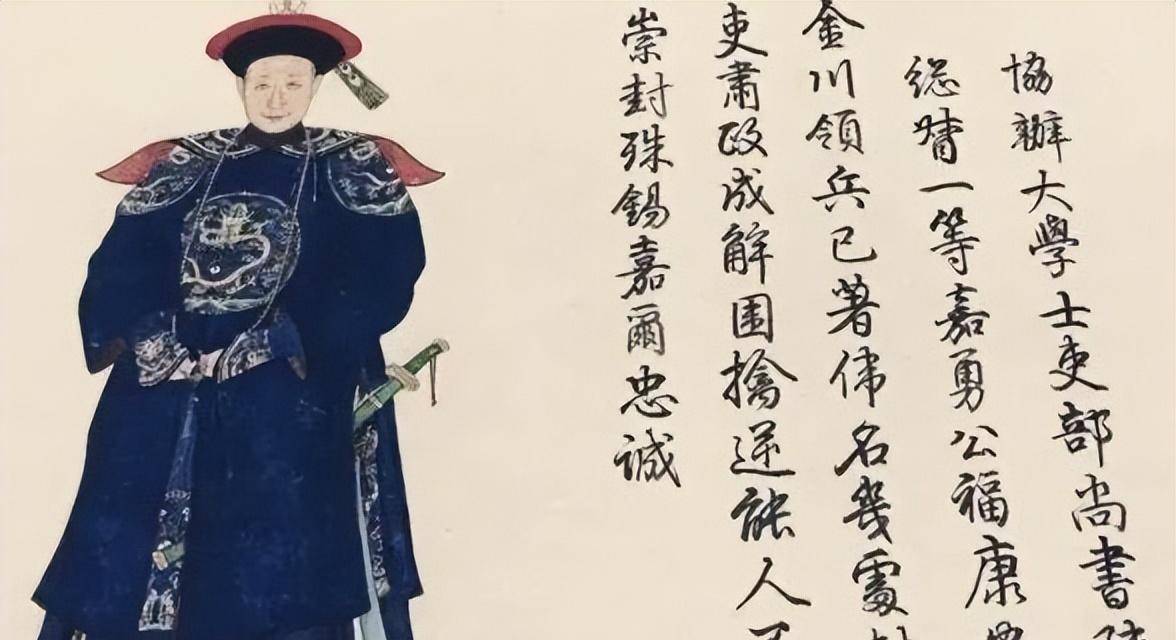 協辦大學士吏部尚書
総督一等嘉勇公福康
金川領兵已著偉名幾處
吏肅政成解圍擒逆能人
崇封殊錫嘉爾忠誠